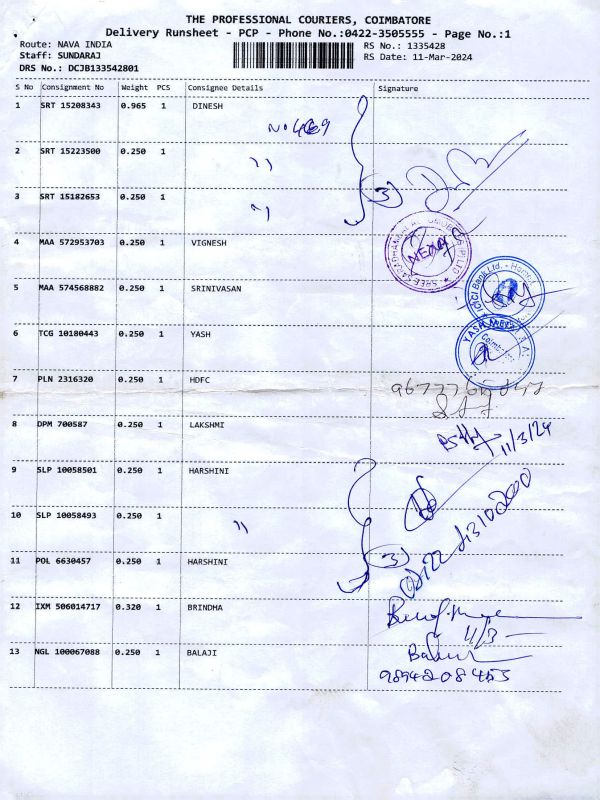 THE PROFESSIONAL COURIERS, COIMBATORE
Delivery Runsheet - PCP - Phone No.:0422-3505555 - Page No.:1
Route: NAVA INDIA RS No.: 1335428
Staff: SUNDARAJ RS Date: 11-Mar-2024
DRS No.: DCJB133542801
S No Consignment No Weight PCS Consignee Details Signature
1 SRT 15208343 0.965 1 DINESH
2 SRT 15223500 0.250 1 ״
3 SRT 15182653 0.250 1 ״
(3)
4 MAA 572953703 0.250 1 VIGNESH
5 MAA 574568882 0.250 1 SRINIVASAN
ICICI Bank Ltd.
6 TCG 10180443 0.250 1 YASH
YASH
Coimbatore
7 PLN 2316320 0.250 1 HDFC
8 DPM 700587 0.250 1 LAKSHMI
11/3/24
9 SLP 10058501 0.250 1 HARSHINI
10 SLP 10058493 0.250 1 ״
11 POL 6630457 0.250 1 HARSHINI
(3)
12 IXM 506014717 0.320 1 BRINDHA
11/3
13 NGL 100067088 0.250 1 BALAJI